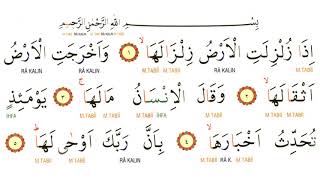 بِسْمِ اللّٰهِ الرَّحْمٰنِ الرَّحِيمِ
M.TABİÎ RÂ KALIN M.TABİÎ RÂ KALIN M.TABİÎ
اِذَا زُلْزِلَتِ الْاَرْضُ زِلْزَالَهَاۙ ﴿١﴾ وَاَخْرَجَتِ الْاَرْضُ
M.TABİÎ RÂ KALIN M.TABİÎ M.TABİÎ RÂ KALIN
اَثْقَالَهَاۙ ﴿٢﴾ وَقَالَ الْاِنْسَانُ مَالَهَاۚ ﴿٣﴾ يَوْمَئِذٍ
M.TABİÎ M.TABİÎ M.TABİÎ İHFA M.TABİÎ M.TABİÎ M.TABİÎ İHFA
تُحَدِّثُ اَخْبَارَهَاۙ ﴿٤﴾ بِاَنَّ رَبَّكَ اَوْحٰى لَهَاۜ ﴿٥﴾
M.TABİÎ RÂ K. M.TABİÎ RÂ KALIN M.TABİÎ M.TABİÎ